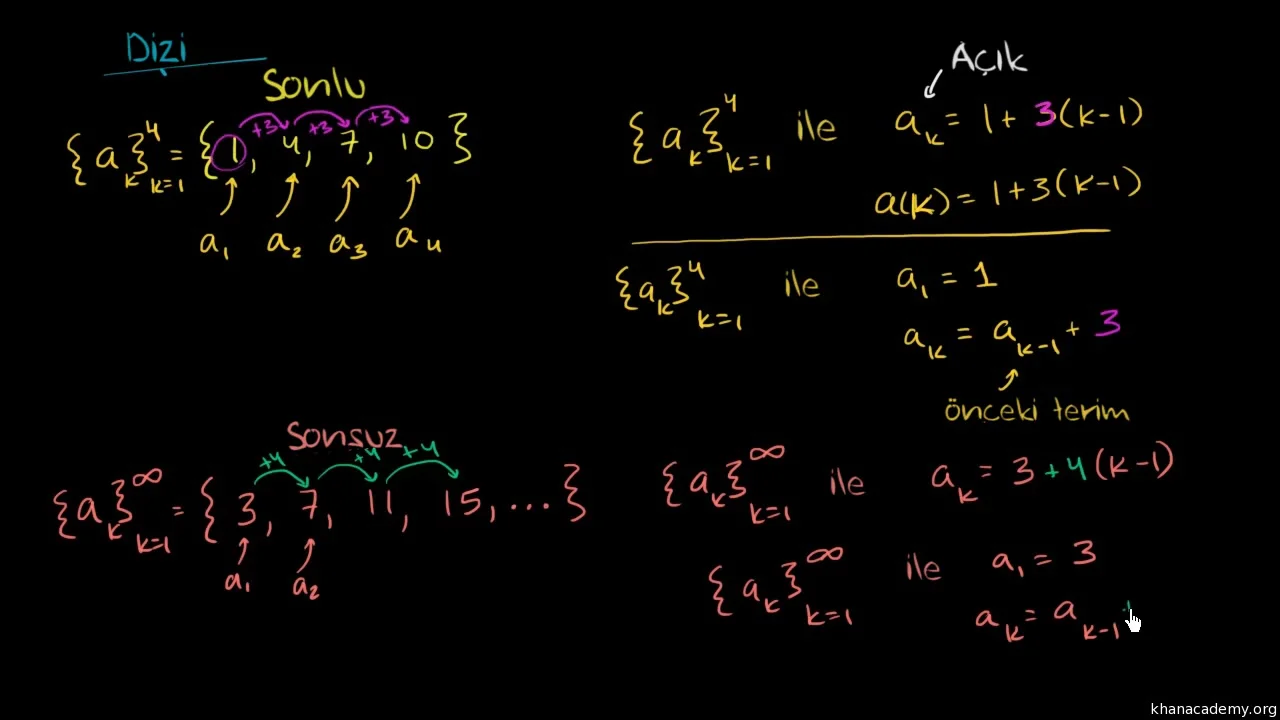 Dizi
Sonlu
{a_k}^4_{k=1} = {1, 4, 7, 10}
+3 +3 +3
a_1 a_2 a_3 a_4
Açık
{a_k}^4_{k=1} ile a_k = 1 + 3(k-1)
a(k) = 1+3(k-1)
{a_k}^4_{k=1} ile a_1 = 1
a_k = a_{k-1} + 3
önceki terim
Sonsuz
+4 +4 +4
{a_k}^∞_{k=1} = {3, 7, 11, 15, ...}
a_1 a_2
{a_k}^∞_{k=1} ile a_k = 3 +4(k-1)
{a_k}^∞_{k=1} ile a_1 = 3
a_k = a_{k-1}
khanacademy.org